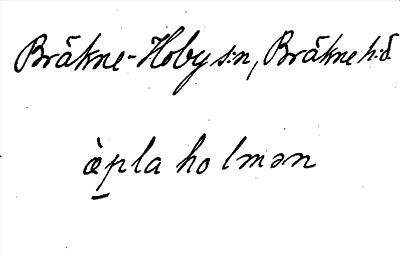 Bräkne-Hoby s:n, Bräkne h:d
æ̀pla holmən